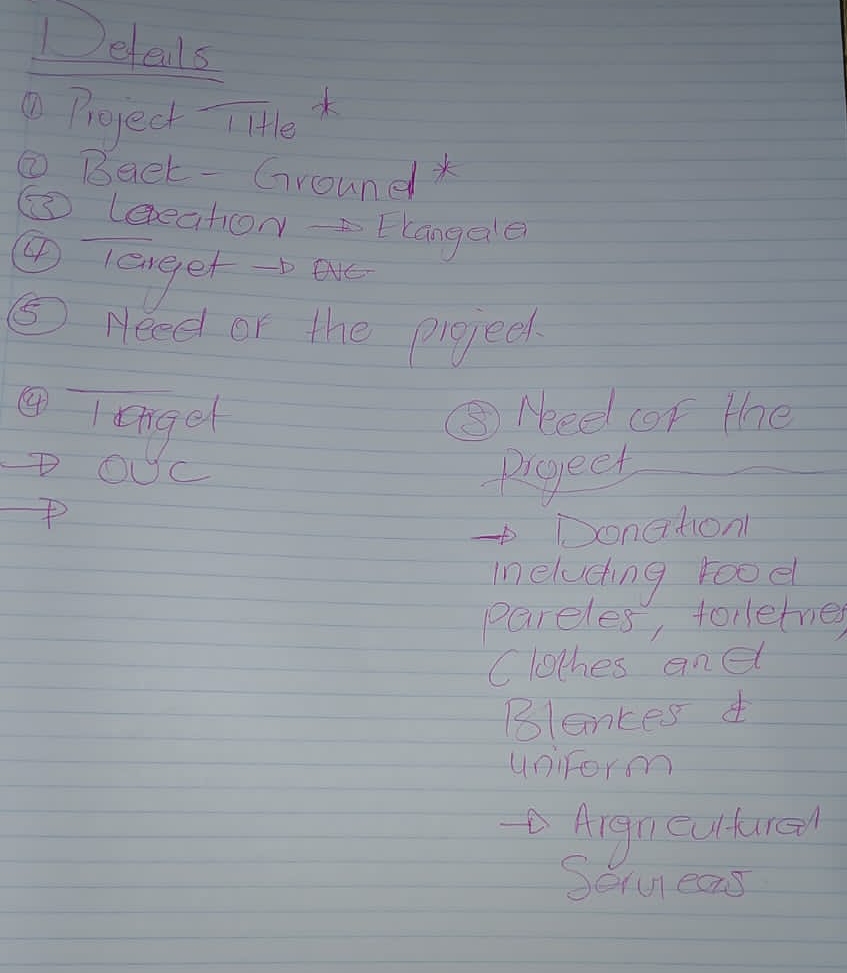 Details
① Project Title *
② Back - Ground *
③ Location → Ekangala
④ Target → OVC
⑤ Need of the project.
④ Target
→ OVC
→
⑤ Need of the
Project
→ Donation
including Food
parcles, toiletries,
Clothes and
Blankes &
uniform
→ Argricultural
Services